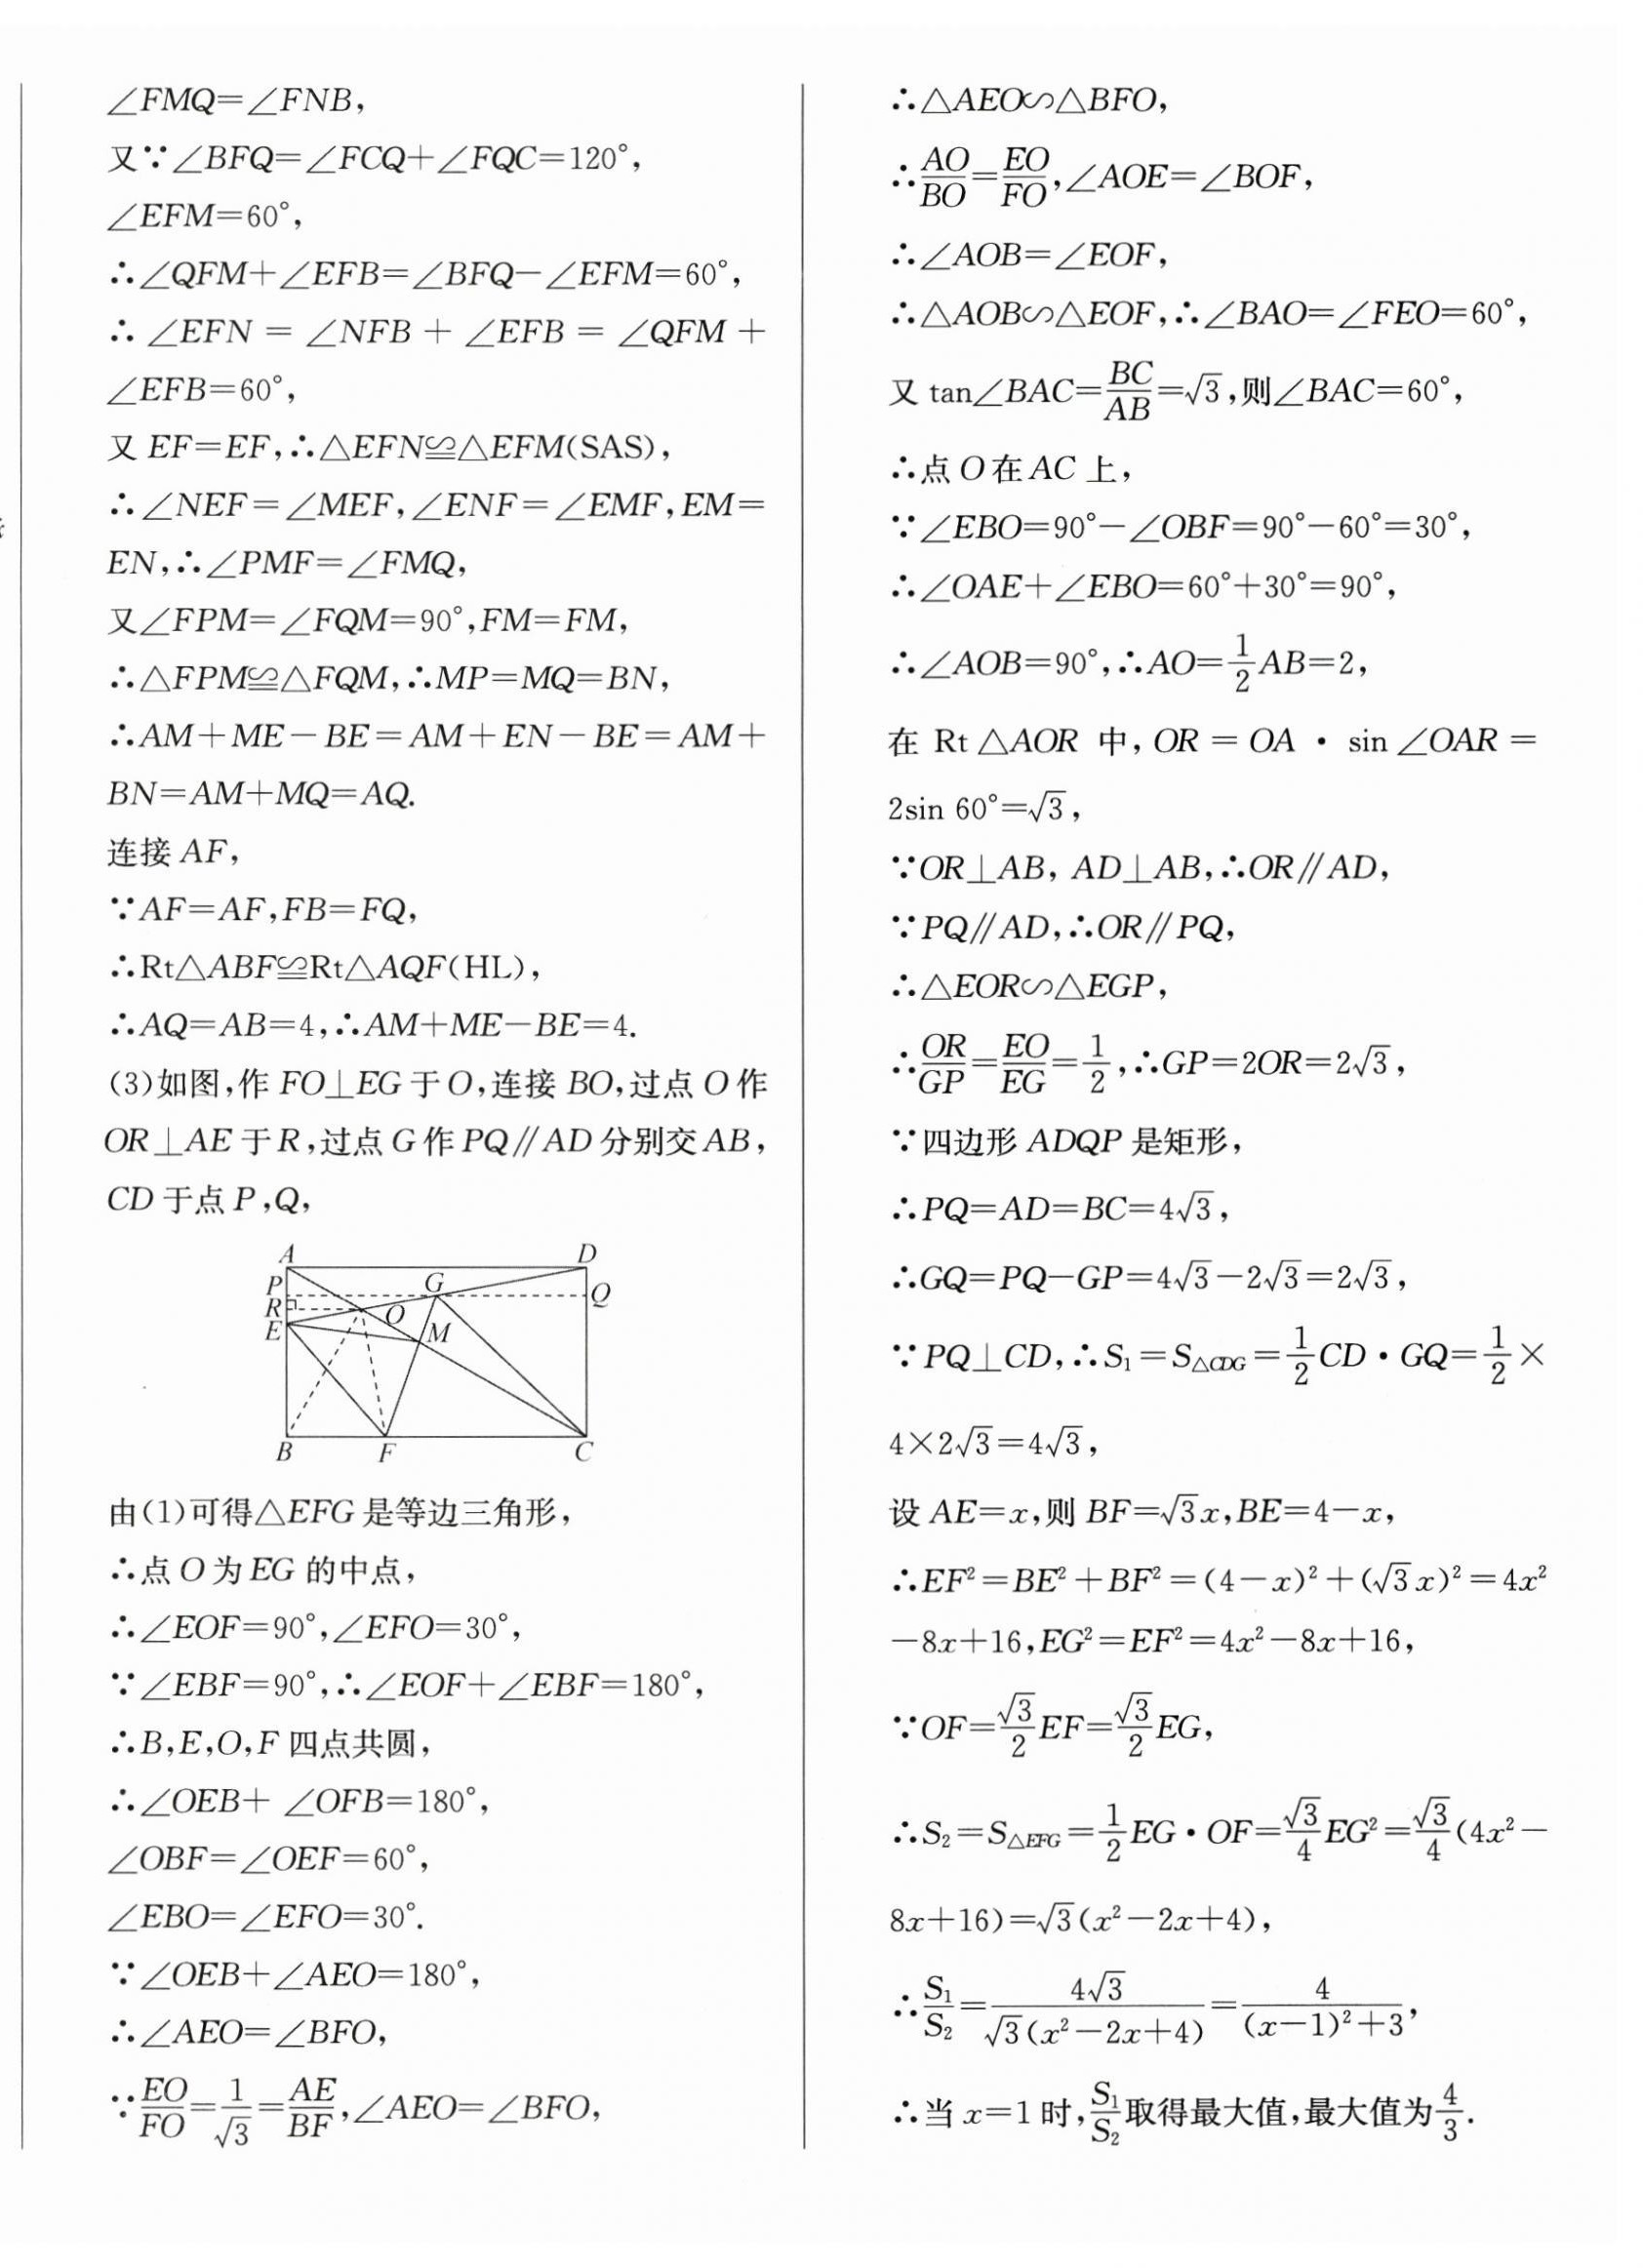 ∠FMQ=∠FNB,
又∵∠BFQ=∠FCQ+∠FQC=120°,
∠EFM=60°,
∴∠QFM+∠EFB=∠BFQ-∠EFM=60°,
∴∠EFN=∠NFB+∠EFB=∠QFM+
∠EFB=60°,
又EF=EF,∴△EFN≌△EFM(SAS),
∴∠NEF=∠MEF,∠ENF=∠EMF,EM=
EN,∴∠PMF=∠FMQ,
又∠FPM=∠FQM=90°,FM=FM,
∴△FPM≌△FQM,∴MP=MQ=BN,
∴AM+ME-BE=AM+EN-BE=AM+
BN=AM+MQ=AQ.
连接AF,
∵AF=AF,FB=FQ,
∴Rt△ABF≌Rt△AQF(HL),
∴AQ=AB=4,∴AM+ME-BE=4.
(3)如图,作FO⊥EG于O,连接BO,过点O作
OR⊥AE于R,过点G作PQ∥AD分别交AB,
CD于点P,Q,
A D
P G Q
R O
E M
B F C
由(1)可得△EFG是等边三角形,
∴点O为EG的中点,
∴∠EOF=90°,∠EFO=30°,
∵∠EBF=90°,∴∠EOF+∠EBF=180°,
∴B,E,O,F四点共圆,
∴∠OEB+∠OFB=180°,
∠OBF=∠OEF=60°,
∠EBO=∠EFO=30°.
∵∠OEB+∠AEO=180°,
∴∠AEO=∠BFO,
∵EO/FO=1/√3=AE/BF,∠AEO=∠BFO,
∴△AEO∽△BFO,
∴AO/BO=EO/FO,∠AOE=∠BOF,
∴∠AOB=∠EOF,
∴△AOB∽△EOF,∴∠BAO=∠FEO=60°,
又tan∠BAC=BC/AB=√3,则∠BAC=60°,
∴点O在AC上,
∵∠EBO=90°-∠OBF=90°-60°=30°,
∴∠OAE+∠EBO=60°+30°=90°,
∴∠AOB=90°,∴AO=1/2AB=2,
在Rt△AOR中,OR=OA·sin∠OAR=
2sin 60°=√3,
∵OR⊥AB,AD⊥AB,∴OR∥AD,
∵PQ∥AD,∴OR∥PQ,
∴△EOR∽△EGP,
∴OR/GP=EO/EG=1/2,∴GP=2OR=2√3,
∵四边形ADQP是矩形,
∴PQ=AD=BC=4√3,
∴GQ=PQ-GP=4√3-2√3=2√3,
∵PQ⊥CD,∴S₁=S△CDG=1/2CD·GQ=1/2×
4×2√3=4√3,
设AE=x,则BF=√3x,BE=4-x,
∴EF²=BE²+BF²=(4-x)²+(√3x)²=4x²
-8x+16,EG²=EF²=4x²-8x+16,
∵OF=√3/2EF=√3/2EG,
∴S₂=S△EFG=1/2EG·OF=√3/4EG²=√3/4(4x²-
8x+16)=√3(x²-2x+4),
∴S₁/S₂=4√3/√3(x²-2x+4)=4/(x-1)²+3,
∴当x=1时,S₁/S₂取得最大值,最大值为4/3.